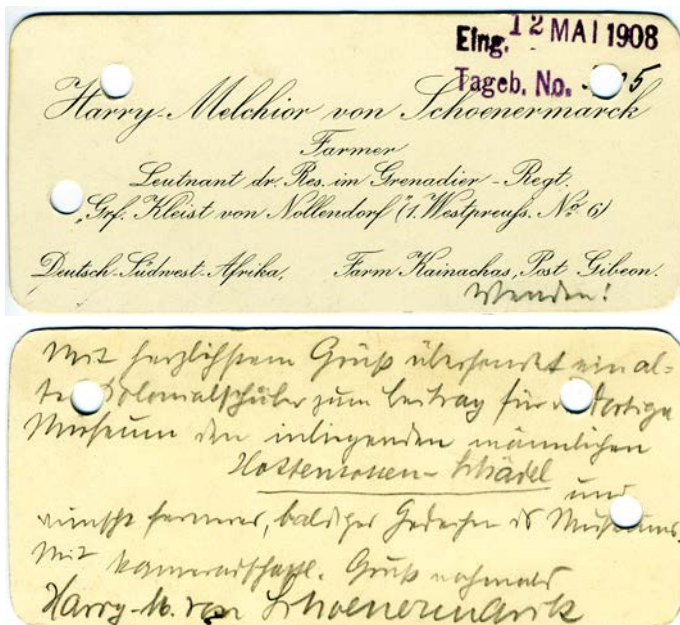 Eing. 12 MAI 1908
Tageb. No. 5
Harry-Melchior von Schoenermarck
Farmer
Leutnant dr. Res. im Grenadier-Regt.
„Grf. Kleist von Nollendorf” (1. Westpreuß. No 6)
Deutsch-Südwest-Afrika, Farm Kainachas, Post Gibeon.
Wenden!
Mit herzlichstem Gruß übersendet ein al-
ter Kolonialschüler zum Beitrag für dortige
Museum den inliegenden männlichen
Hottentotten-Schädel und
wünscht ferneres, baldiges Gedeihen des Museums.
Mit kameradschaftl. Gruß nochmals
Harry-M. von Schoenermarck